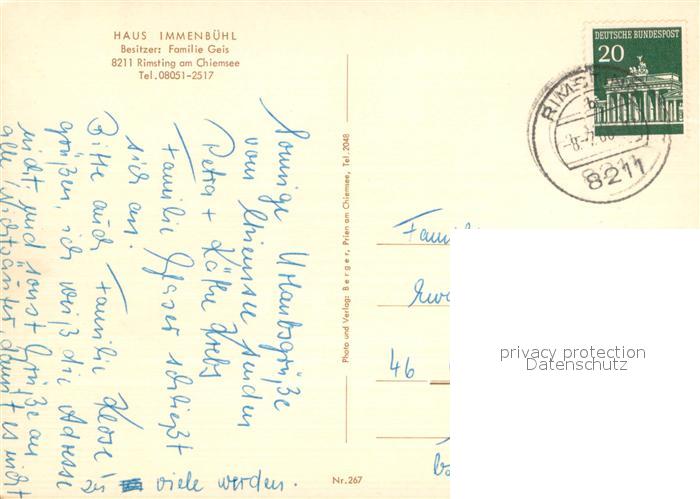 HAUS IMMENBÜHL
Besitzer: Familie Geis
8211 Rimsting am Chiemsee
Tel. 08051-2517
DEUTSCHE BUNDESPOST
20
RIMSTING
b
8211
Sonnige Urlaubsgrüße
vom Chiemsee senden
Petra + Käthe Krebs
Familie Glaser schließt
sich an.
Bitte auch Familie Klose
grüßen, ich weiß die Adresse
nicht, und sonst Grüße an
alle Nichtsänter, damit es nicht
zu viele werden.
Photo und Verlag: Berger, Prien am Chiemsee, Tel. 2048
Nr. 267
46
privacy protection
Datenschutz